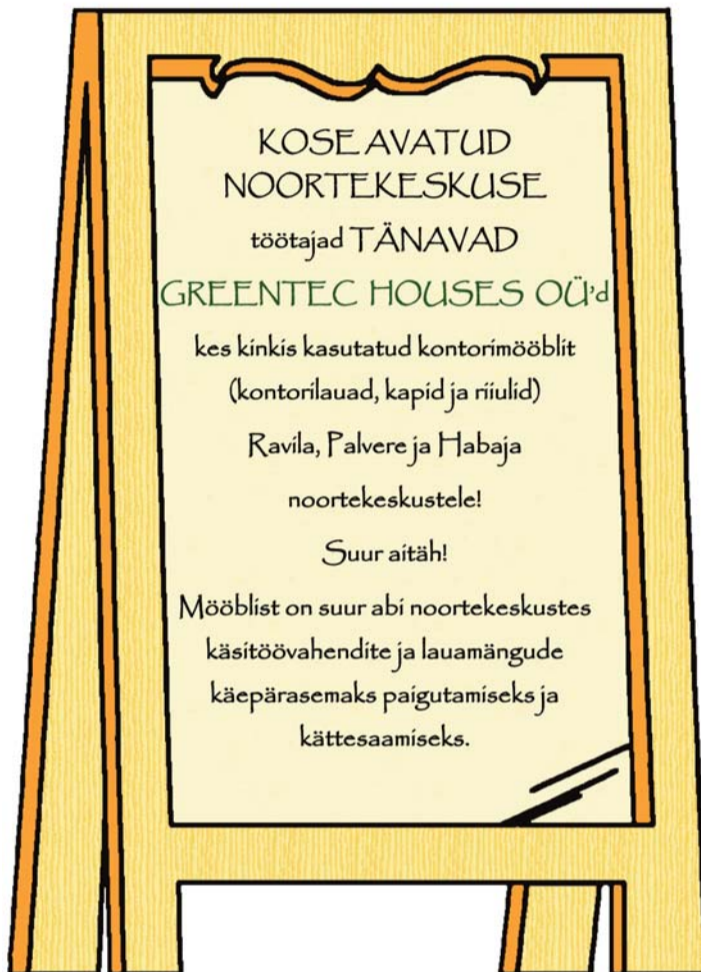 KOSE AVATUD
NOORTEKESKUSE
töötajad TÄNAVAD
GREENTEC HOUSES OÜ'd
kes kinkis kasutatud kontorimööblit
(kontorilauad, kapid ja riiulid)
Ravila, Palvere ja Habaja
noortekeskustele!
Suur aitäh!
Mööblist on suur abi noortekeskustes
käsitöövahendite ja lauamängude
käepärasemaks paigutamiseks ja
kättesaamiseks.